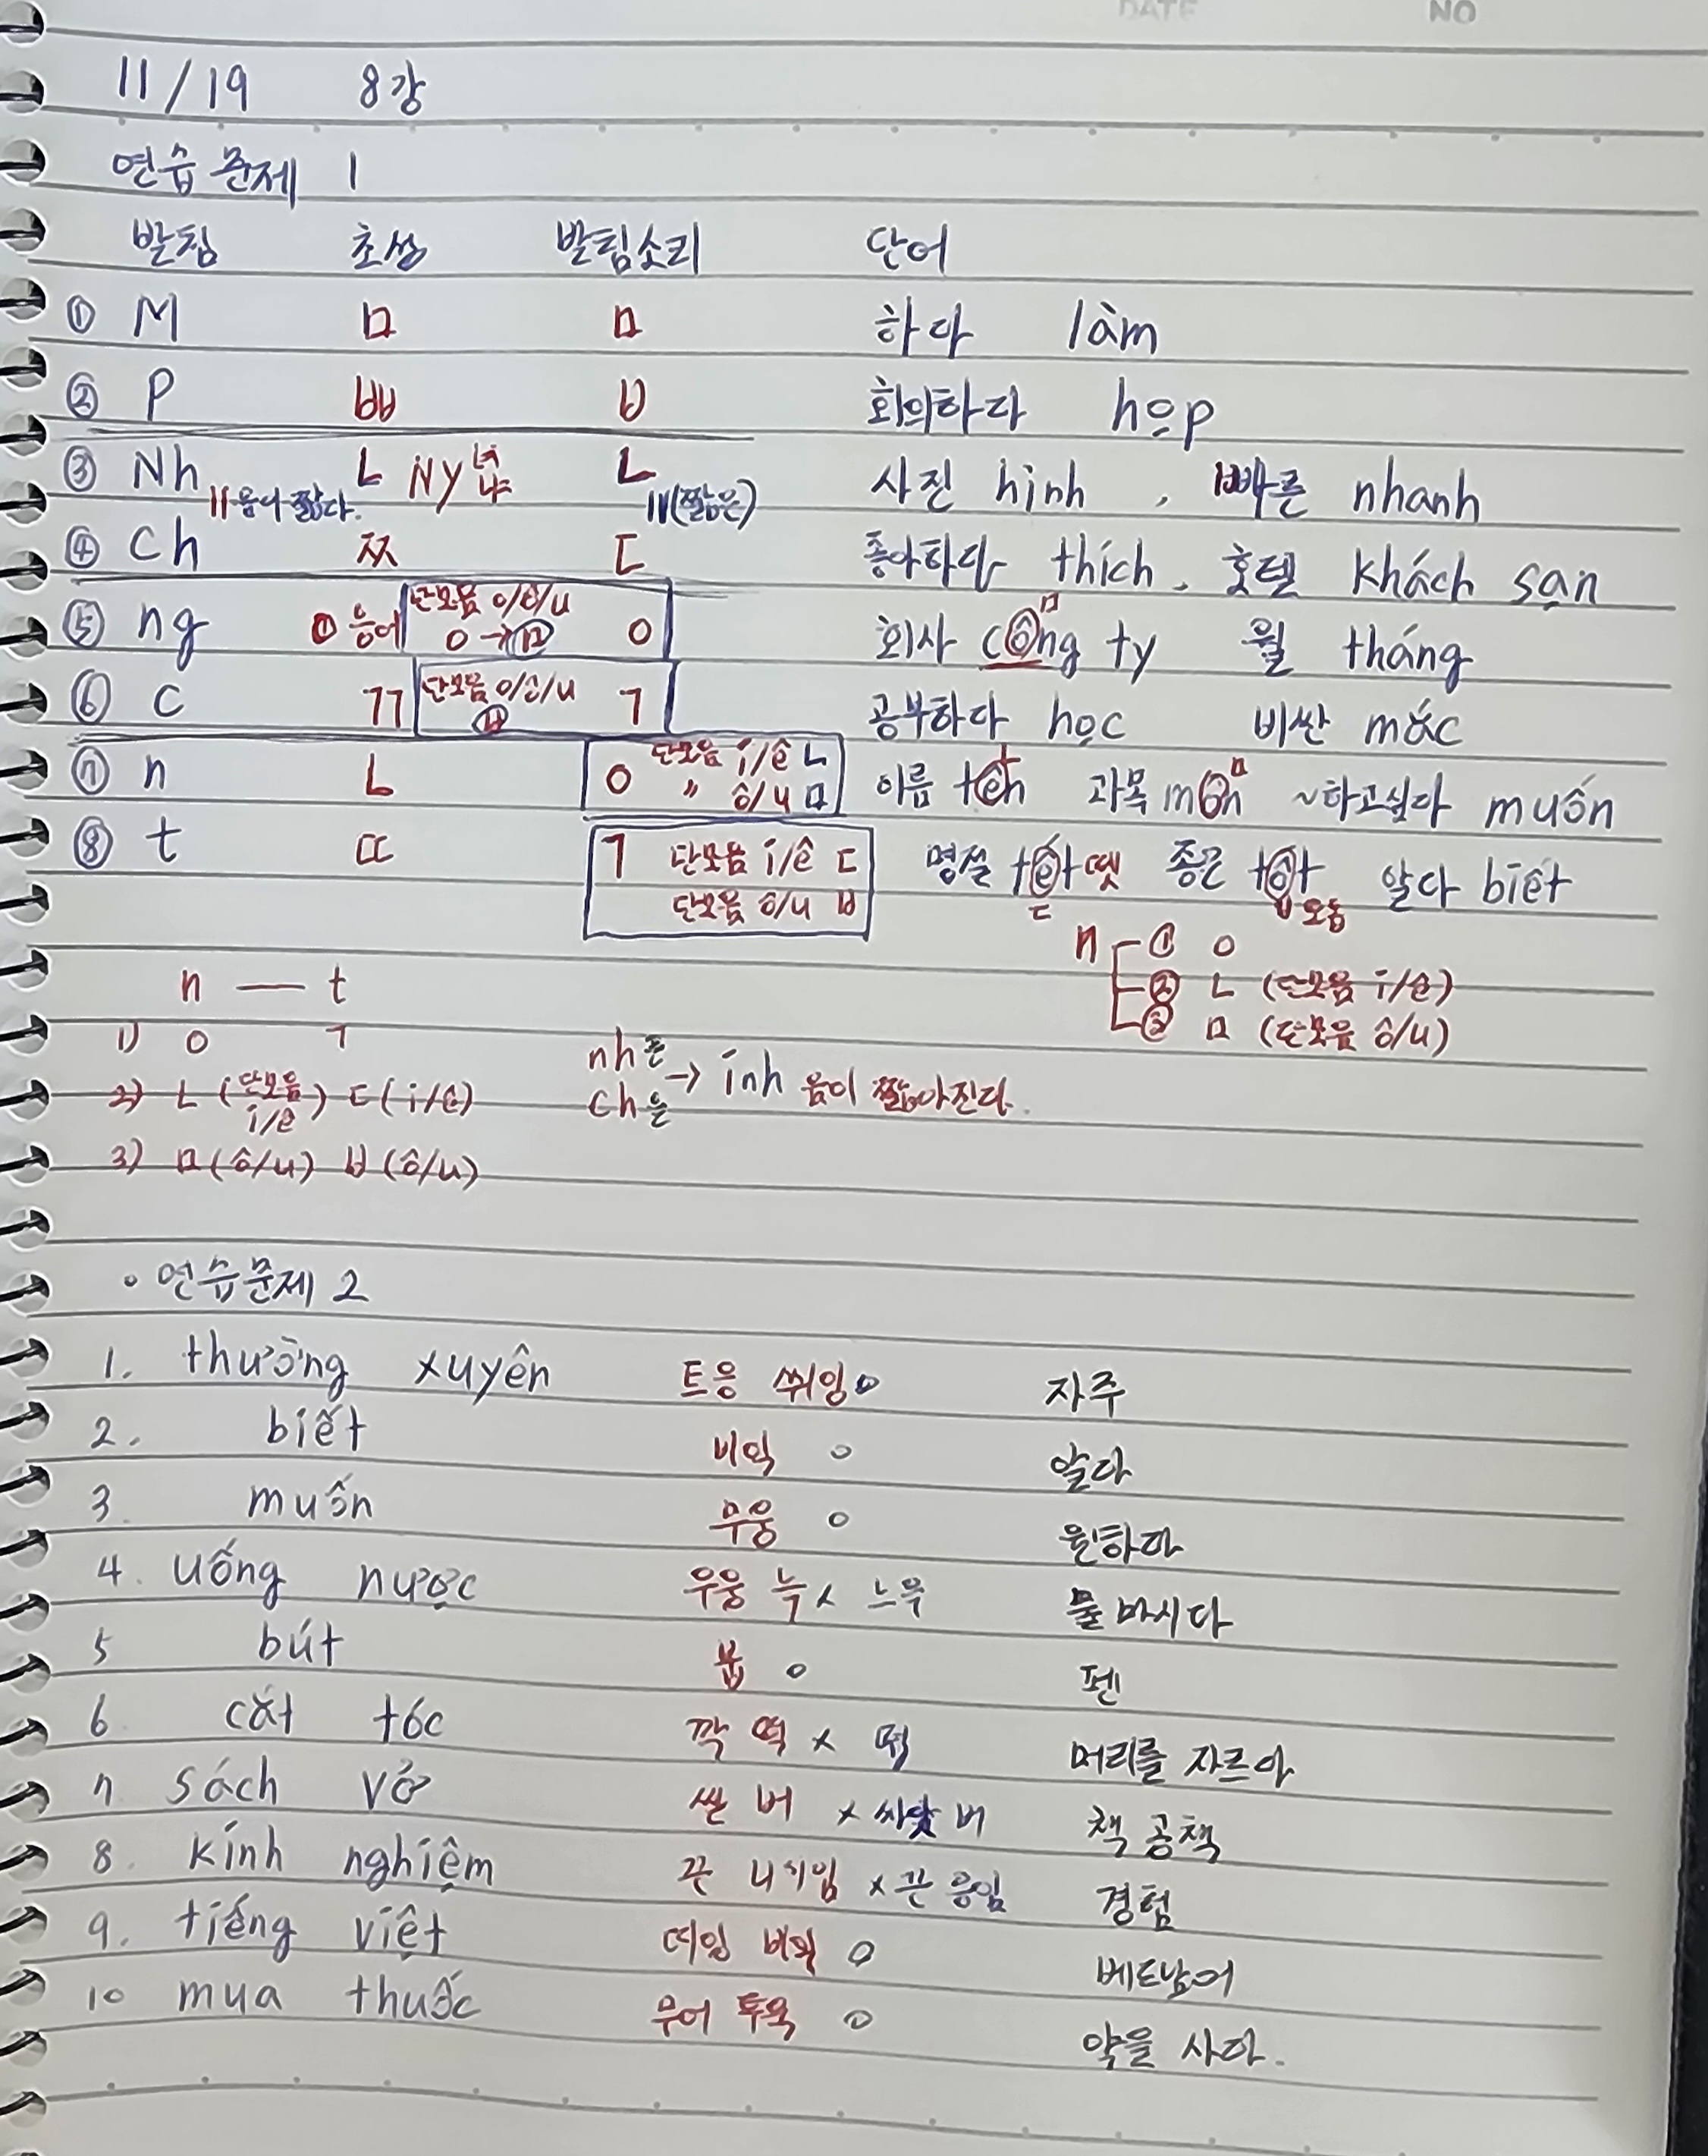 DATE NO
11/19 8강
연습문제 1
받침 초성 받침소리 단어
① M ㅁ ㅁ 하다 làm
② P ㅃ ㅂ 회의하다 họp
③ Nh ㄴ Ny 녀 냐 ㄴ 사진 hình , 빠른 nhanh
음이 짧다. (짧은)
④ Ch ㅉ ㄷ 좋아하다 thích, 호텔 khách sạn
⑤ ng ① 응어 단모음 o/ô/u ㅇ→ㅁ ㅇ 회사 công ty ㅁ 월 tháng
⑥ C ㄲ 단모음 o/ô/u ㅂ ㄱ 공부하다 học 비싼 mắc
⑦ n ㄴ ㅇ 단모음 i/ê ㄴ 〃 ô/u ㅁ 이름 tên ㄴ 과목 môn ㅁ ~하고싶다 muốn
⑧ t ㄸ ㄱ 단모음 i/ê ㄷ 단모음 ô/u ㅂ 명절 tết 뗏 ㄷ 좋은 tốt ㅂ 알다 biết
n ① ㅇ
② ㄴ (단모음 i/ê)
③ ㅁ (단모음 ô/u)
n — t
1) ㅇ ㄱ
2) ㄴ (단모음 i/ê) ㄷ (i/ê)
3) ㅁ (ô/u) ㅂ (ô/u)
nh는
ch은 → ính 음이 짧아진다.
• 연습문제 2
1. thường xuyên 트응 쒸잉 o 자주
2. biết 비익 o 알다
3. muốn 무웅 o 원하다
4. uống nước 우웅 늑 x 느윽 물 마시다
5 bút 붑 o 펜
6 cắt tóc 깍 떡 x 떡 머리를 자르다
7 sách vở 싿 버 x 싸앋 버 책 공책
8. kính nghiệm 낀 니임 x 낀 응임 경험
9. tiếng việt 띠잉 비익 o 베트남어
10 mua thuốc 무어 투욱 o 약을 사다.